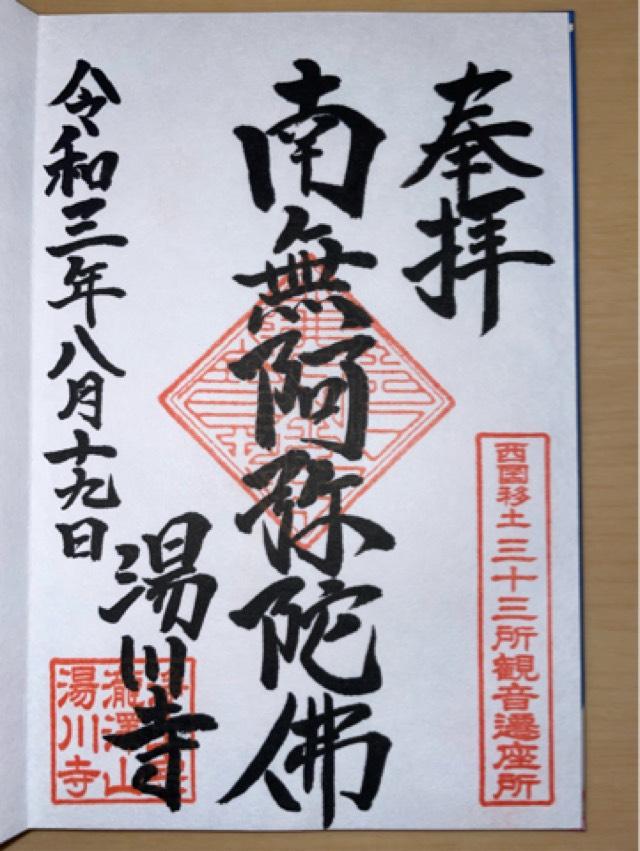 奉拝
西国移土三十三所観音遷座所
南無阿弥陀佛
湯川寺
令和三年八月十九日
瀧澤山
湯川寺